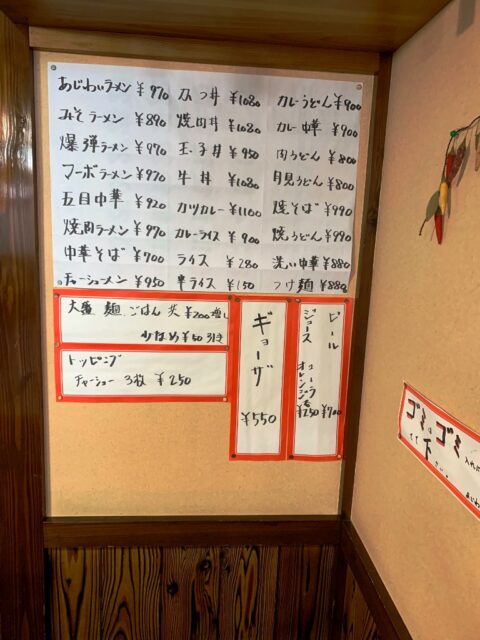 あじわいラーメン ¥970
みそラーメン ¥890
爆弾ラーメン ¥970
マーボラーメン ¥970
五目中華 ¥920
焼肉ラーメン ¥970
中華そば ¥700
チャーシューメン ¥950
カツ丼 ¥1080
焼肉丼 ¥1080
玉子丼 ¥950
牛丼 ¥1080
カツカレー ¥1100
カレーライス ¥900
ライス ¥280
半ライス ¥150
カレーうどん ¥900
カレー中華 ¥900
肉うどん ¥800
月見うどん ¥800
焼そば ¥990
焼うどん ¥990
洗い中華 ¥880
つけ麺 ¥880
大盛 麺、ごはん 共 ¥200増し
少なめ ¥50引き
トッピング
チャーシュー 3枚 ¥250
ギョーザ ¥550
ビール ¥700
ジュース コーラ オレンジ ¥250
ゴミはゴミ
下